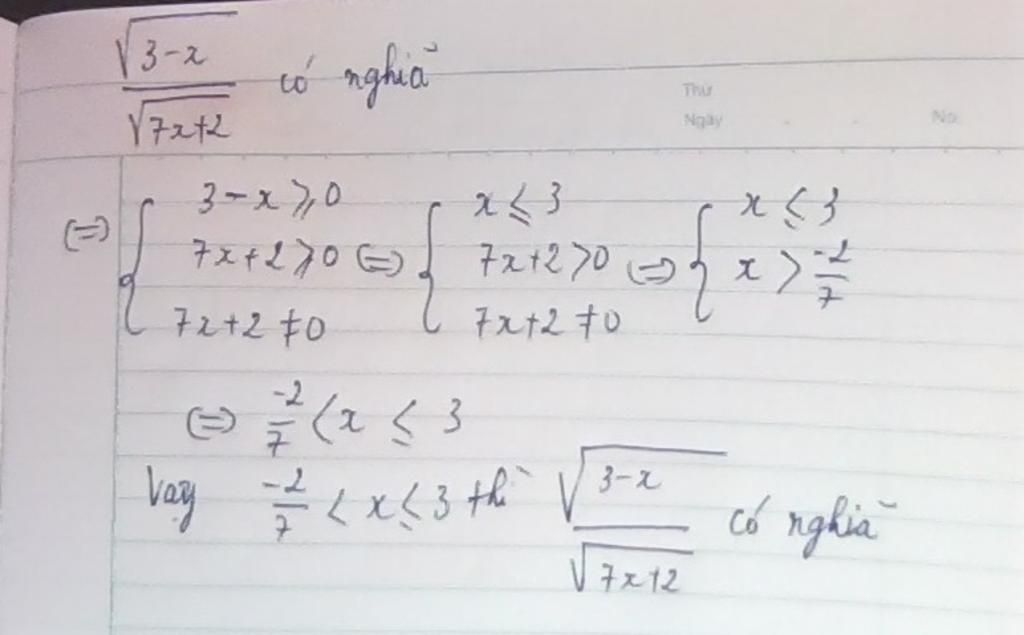 √(3-x) / √(7x+2) có nghĩa
Thứ
Ngày . . No.
(=) { 3-x ⩾ 0 ; 7x+2 ⩾ 0 ; 7x+2 ≠ 0 (=) { x ≤ 3 ; 7x+2 > 0 ; 7x+2 ≠ 0 (=) { x ≤ 3 ; x > -2/7
(=) -2/7 < x ≤ 3
Vậy -2/7 < x ≤ 3 thì √(3-x) / √(7x+2) có nghĩa